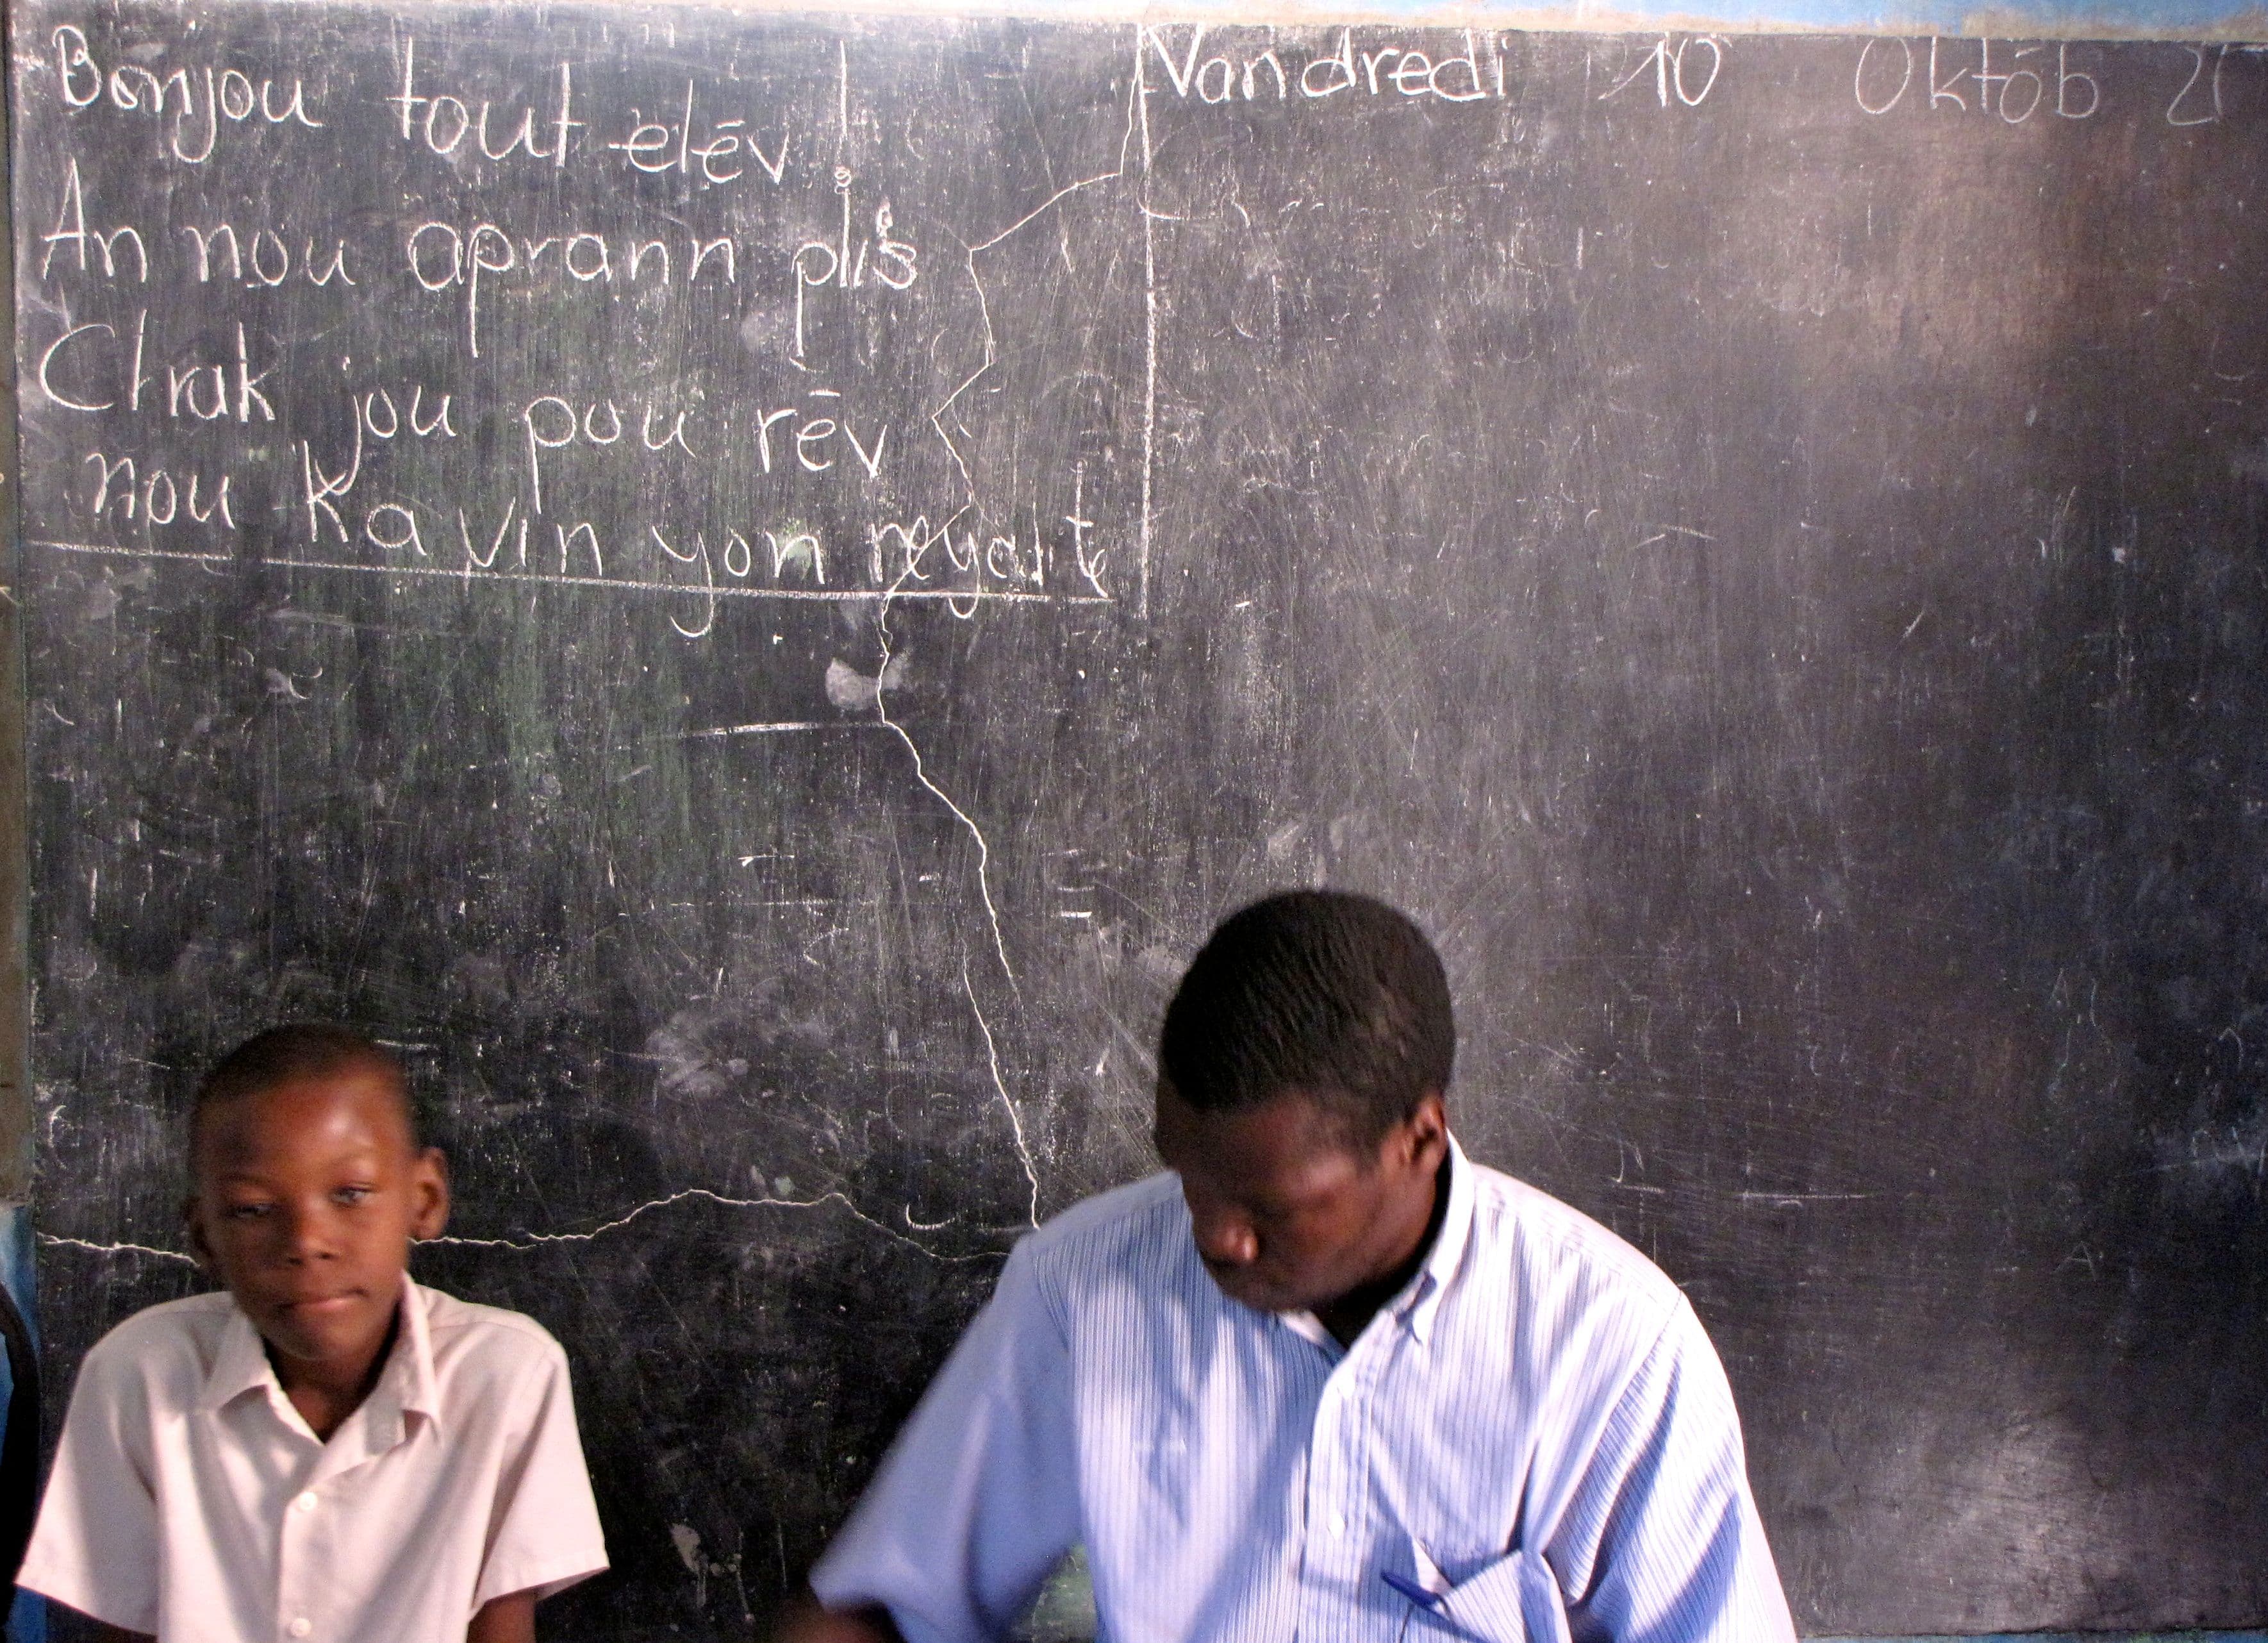 Bonjou tout elēv !
An nou aprann plis
Chak jou pou rēv
nou Kavin yon reyalite
Vandredi 10 Októb